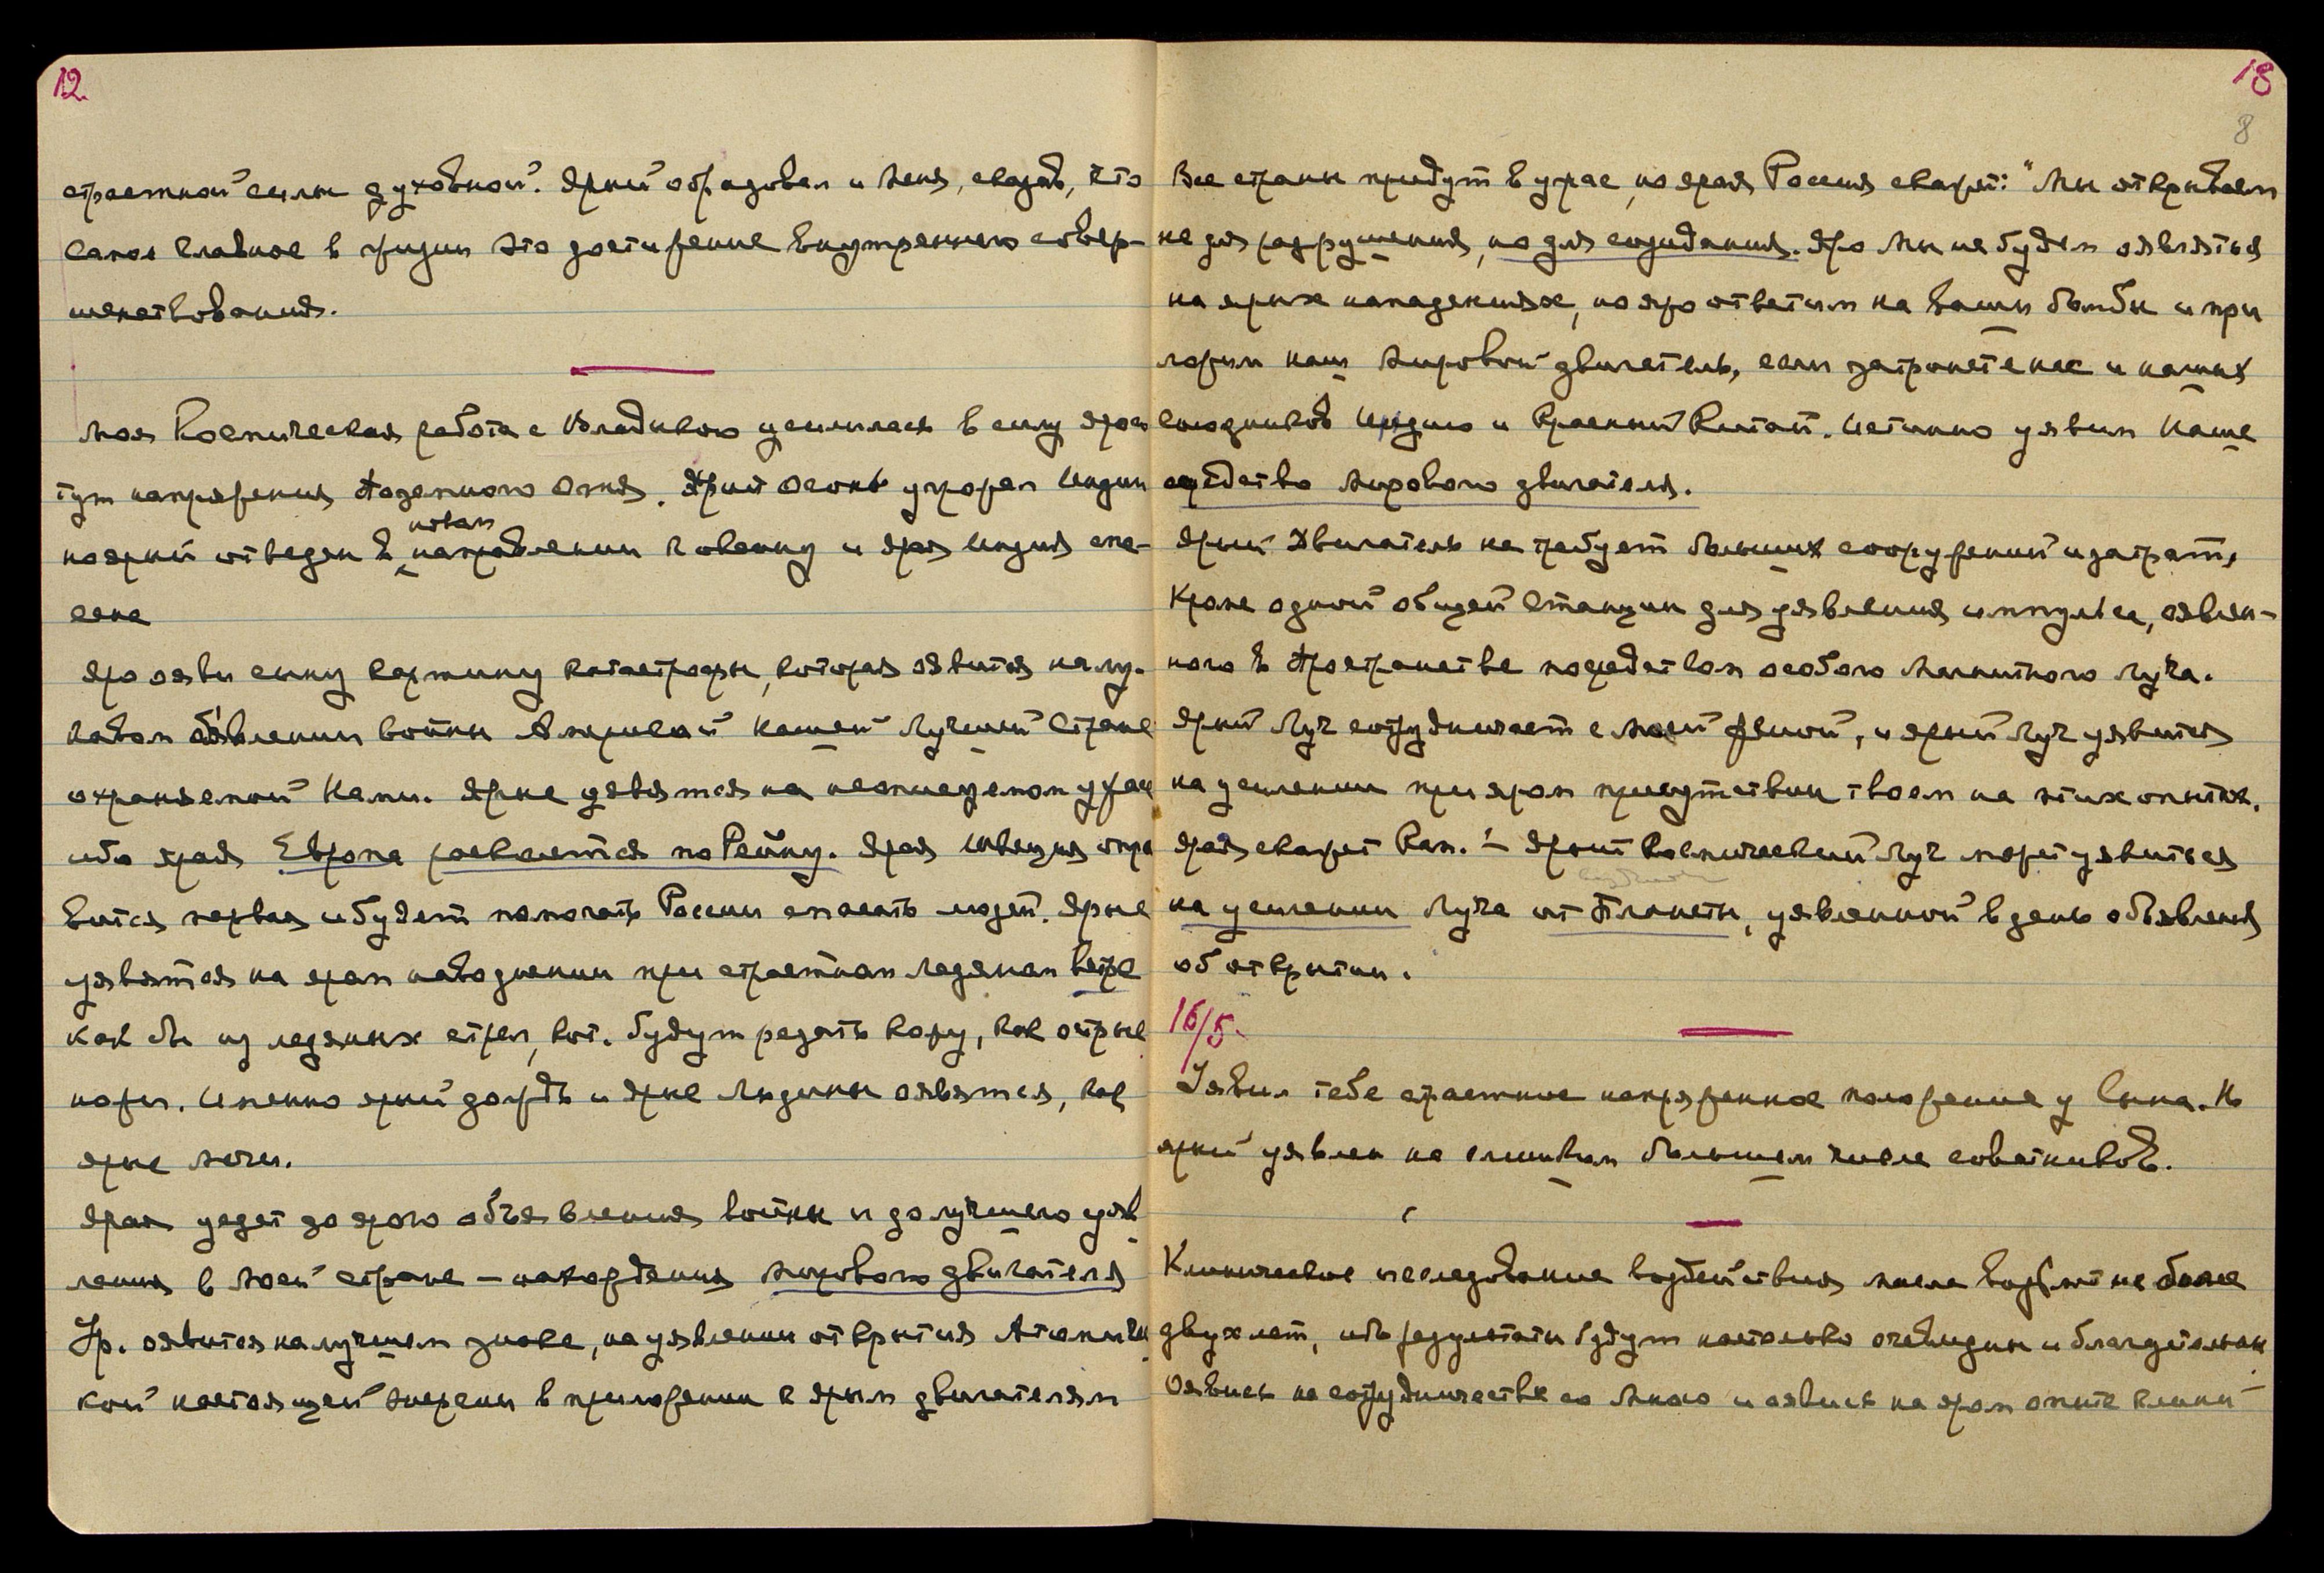 12.
страстной силы духовной. Ярый обрадовал и меня, сказав, что
самое главное в жизни это достижение внутреннего совер-
шенствования.
Моя Космическая работа с Владыкою усилилась в силу ярос
тут напряжения подземного огня. Ярый огонь угрожал Индии
но ярый отведен в новом направлении к океану и ярая Индия спа-
сена
Яро яви сыну картину катастрофы, которая явится на лу-
кавом объявлении войны Америкой нашей Лучшей Стране
охраняемой Нами. Ярые уявятся на неописуемом ужасе
ибо ярая Европа расколется по Рейну. Ярая Швеция опра
вится первая и будет помогать России спасать людей. Ярые
уявятся на яром наводнении при страстном ледяном ветре
как бы из ледяных стрел, кот. будут резать кожу, как острые
ножи. Именно ярый дождь и ярые льдины оявятся, как
ярые мечи.
Ярая уедет до ярого объявления войны и до лучшего уяв
ления в Моей стране – нахождения мирового двигателя
Ур. оявится на лучшем знаке, на уявлении открытия Атомичес
кой настоящей энергии в приложении к ярым двигателям
13
8
Все страны придут в ужас, но ярая Россия скажет: "Мы открываем
не для разрушения, но для созидания. Яро мы не будем оявляться
на ярых нападениях, но яро ответим на ваши бомбы и при
ложим наш мировой двигатель, если затронете нас и наших
союзников Индию и Красный Китай. Истинно уявим Наше
средство мирового двигателя.
Ярый Двигатель не требует больших сооружений и затрат,
Кроме одной общей Станции для уявления импульса, оявлен-
ного в пространстве посредством особого магнитного луча.
Ярый Луч сотрудничает с моей физой, и ярый Луч уявится
на усилении при яром присутствии твоем на этих опытах.
Ярая скажет Кап. – Ярый Космический Луч может уявиться
на усилении луча от Планеты, уявленной в день объявления
об открытии.
16/5.
Уявил тебе страстное напряженное положение у Сына. Но
ярый уявлен на слишком большем числе советников.
Клиническое исследование воздействия масла возьмет не более
двух лет, ибо результаты будут настолько очевидны и благодетельны
Оявись на сотрудничестве со Мною и оявись на яром опыте клини-